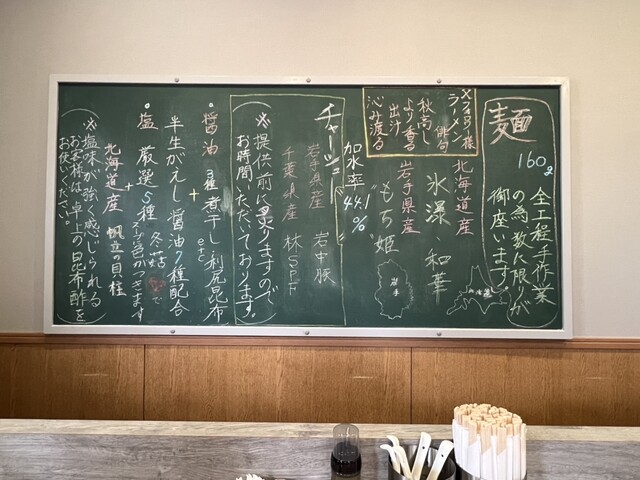 麺
160g
全工程手作業
の為、数に限りが
御座います。
Xフォロワー様
ラーメン俳句
秋高し
より香る
出汁
沁み渡る
北海道産
氷瀑・和華
岩手県産
"もち姫"
加水率44.1%
岩手
北海道
チャーシュー
岩手県産 岩中豚
千葉県産 林SPF
(※提供前に炙りますので
お時間いただいております。)
醤油 3種煮干し・利尻昆布
etc
+
半生がえし 醤油7種配合
塩 厳選5種 冬菇で
茶色がつきます
+
北海道産 帆立の貝柱
(※塩味が強く感じられる
お客様は、卓上の昆布酢を
お使いください。)